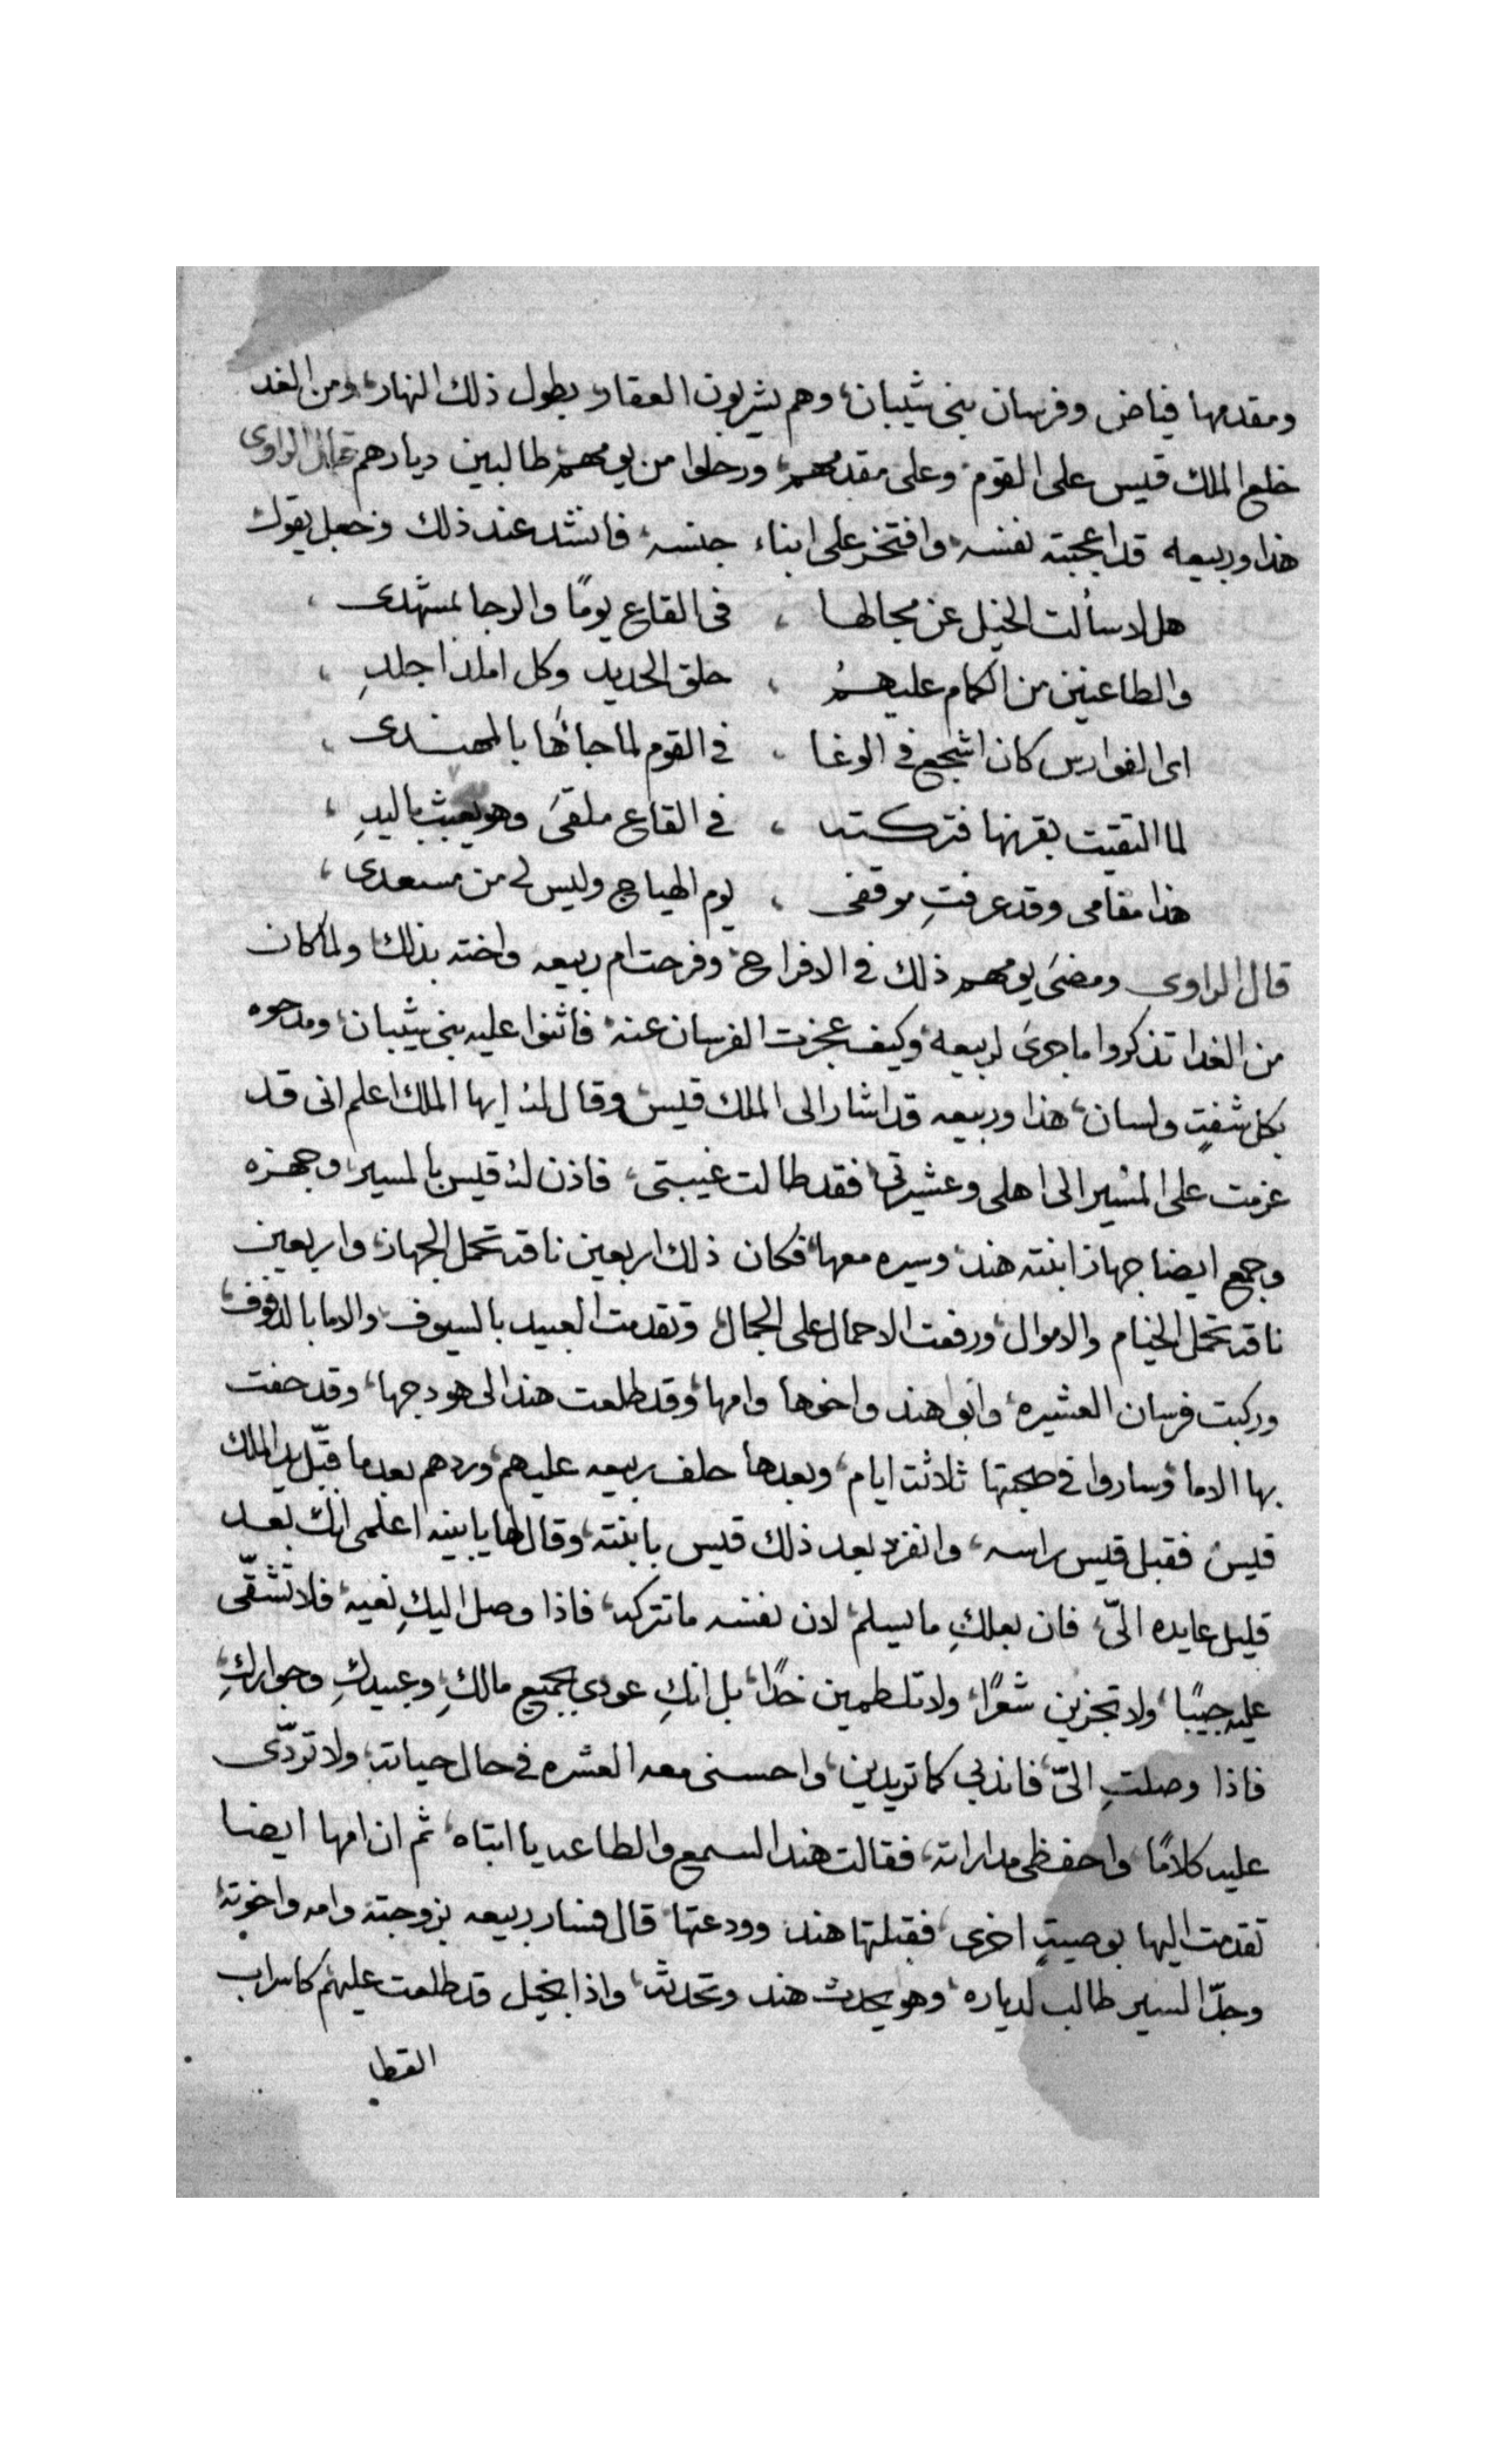 ومقدمها فياض وفرسان بنى شيبان، وهم يشربون العقار، بطول ذلك النهار، ومن الغد
خلع الملك قيس على القوم، وعلى مقدمهم، ورحلوا من يومهم، طالبين ديارهم قال الراوى
هذا وربيعه قد اعجبته نفسه، وافتخر على ابناء جنسه، فانشد عند ذلك وجعل يقول
هل لا سألت الخيل عن مجالها ، فى القاع يومًا والرجا لمشهدى ،
والطاعنين من الكمام عليهمُ ، حلق الحديد وكل املذ اجلدِ ،
اى الفوارس كان اشجع فى الوغا ، فى القوم لما جائها بالمهندى ،
لما التقيت بقرنها فتركته ، فى القاع ملقىَ وهو يعبث باليدِ ،
هذا مقامى وقد عرفتِ موقفى ، يوم الهياج وليس لى من مسعدى ،
قال الراوى ومضىَ يومهم ذلك فى الافراح، وفرحت ام ربيعه واخته بذلك ولما كان
من الغدا تذكروا ما جرىَ لربيعه، وكيف عجزت الفرسان عنه، فاثنوا عليه بنى شيبان، ومدحوه
بكل شفتٍ ولسان، هذا وربيعه قد اشار الى الملك قيس، وقال له، ايها الملك اعلم انى قد
عزمت على المسير الى اهلى وعشيرتى، فقد طالت غيبتى، فاذن له قيس بالمسير، وجهزه
وجمع ايضا جهاز ابنته هند، وسيره معها، فكان ذلك اربعين ناقه تحمل الجهاز، واربعين
ناقه تحمل الخيام والاموال، ورفعت الاحمال على الجمال، وتقدمت العبيد بالسيوف، والاما بالدفوف،
وركبت فرسان العشيره، وابو هند واخوها وامها، وقد طلعت هند الى هودجها، وقد حفت
بها الاما، وساروا فى صحبتها ثلاثت ايام، وبعدها حلف ربيعه عليهم، وردهم بعد ما قبّل يد الملك
قيس، فقبل قيس راسه، وانفرد بعد ذلك قيس بابنته، وقال لها يابنيه اعلمى انك بعد
قليل عايده الىّ، فان بعلكِ ما يسلم، لان نفسه ما تتركه، فاذا وصل اليكِ نعيه، فلا تشقّى
عليه جيبًا، ولا تجزين شعرًا، ولا تلطمين خدًا، بل انكِ عودى بجميع مالكِ، وعبيدكِ وجواركِ،
فاذا وصلتِ الىّ، فاندبى كما تريدين، واحسنى معه العشره فى حال حياته، ولا تردّى
عليه كلامًا، واحفظى مداراته، فقالت هند السمع والطاعه يا ابتاه، ثم ان امها ايضا
تقدمت اليها بوصيتٍ اخرى، فقبلتها هند، وودعتها، قال فسار ربيعه بزوجته وامه واخوته،
وجدّ السير طالب لدياره، وهو يحدث هند وتحدثه، واذا بخيل قد طلعت عليهم كاسراب
القطا